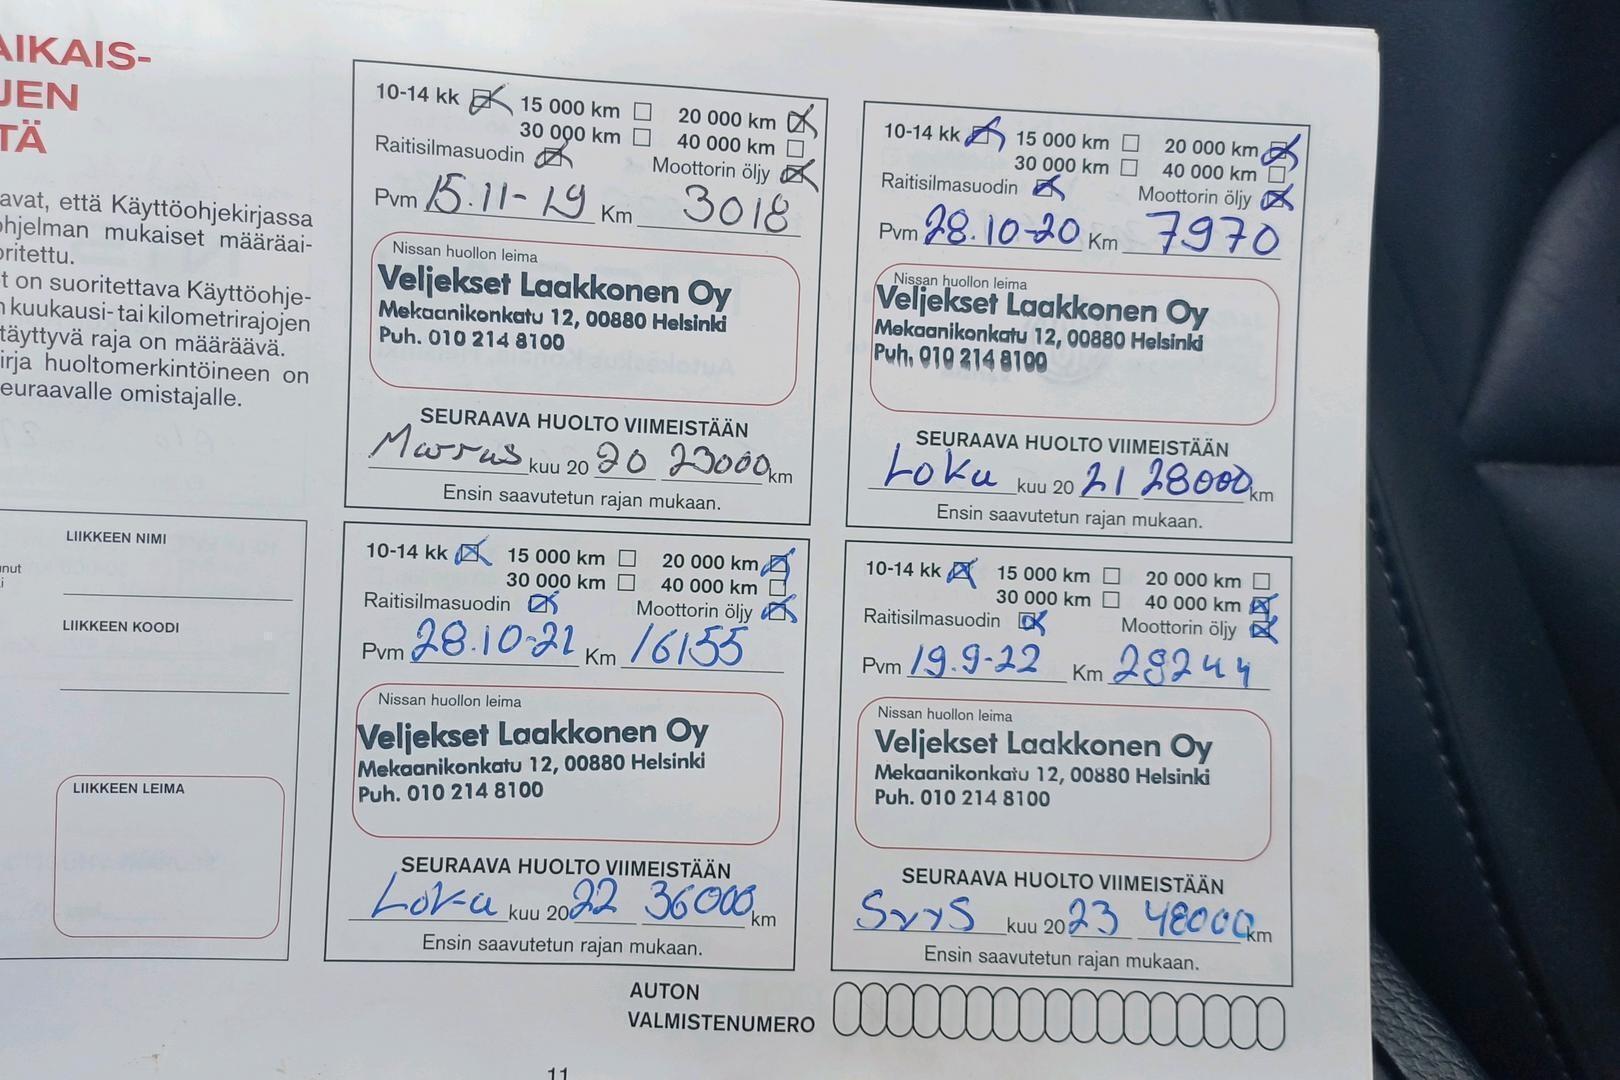 AIKAIS-
JEN
TÄ
avat, että Käyttöohjekirjassa
ohjelman mukaiset määräai-
oritettu.
t on suoritettava Käyttöohje-
n kuukausi- tai kilometrirajojen
täyttyvä raja on määräävä.
irja huoltomerkintöineen on
seuraavalle omistajalle.
LIIKKEEN NIMI
nut
i
LIIKKEEN KOODI
LIIKKEEN LEIMA
10-14 kk 15 000 km 20 000 km
30 000 km 40 000 km
Raitisilmasuodin Moottorin öljy
Pvm 15.11-19 Km 3018
Nissan huollon leima
Veljekset Laakkonen Oy
Mekaanikonkatu 12, 00880 Helsinki
Puh. 010 214 8100
SEURAAVA HUOLTO VIIMEISTÄÄN
Marras kuu 20 20 23000 km
Ensin saavutetun rajan mukaan.
10-14 kk 15 000 km 20 000 km
30 000 km 40 000 km
Raitisilmasuodin Moottorin öljy
Pvm 28.10-20 Km 7970
Nissan huollon leima
Veljekset Laakkonen Oy
Mekaanikonkatu 12, 00880 Helsinki
Puh. 010 214 8100
SEURAAVA HUOLTO VIIMEISTÄÄN
Loka kuu 20 21 28000 km
Ensin saavutetun rajan mukaan.
10-14 kk 15 000 km 20 000 km
30 000 km 40 000 km
Raitisilmasuodin Moottorin öljy
Pvm 28.10-21 Km 16155
Nissan huollon leima
Veljekset Laakkonen Oy
Mekaanikonkatu 12, 00880 Helsinki
Puh. 010 214 8100
SEURAAVA HUOLTO VIIMEISTÄÄN
Loka kuu 20 22 36000 km
Ensin saavutetun rajan mukaan.
10-14 kk 15 000 km 20 000 km
30 000 km 40 000 km
Raitisilmasuodin Moottorin öljy
Pvm 19.9-22 Km 29244
Nissan huollon leima
Veljekset Laakkonen Oy
Mekaanikonkatu 12, 00880 Helsinki
Puh. 010 214 8100
SEURAAVA HUOLTO VIIMEISTÄÄN
Syys kuu 20 23 48000 km
Ensin saavutetun rajan mukaan.
AUTON
VALMISTENUMERO
11